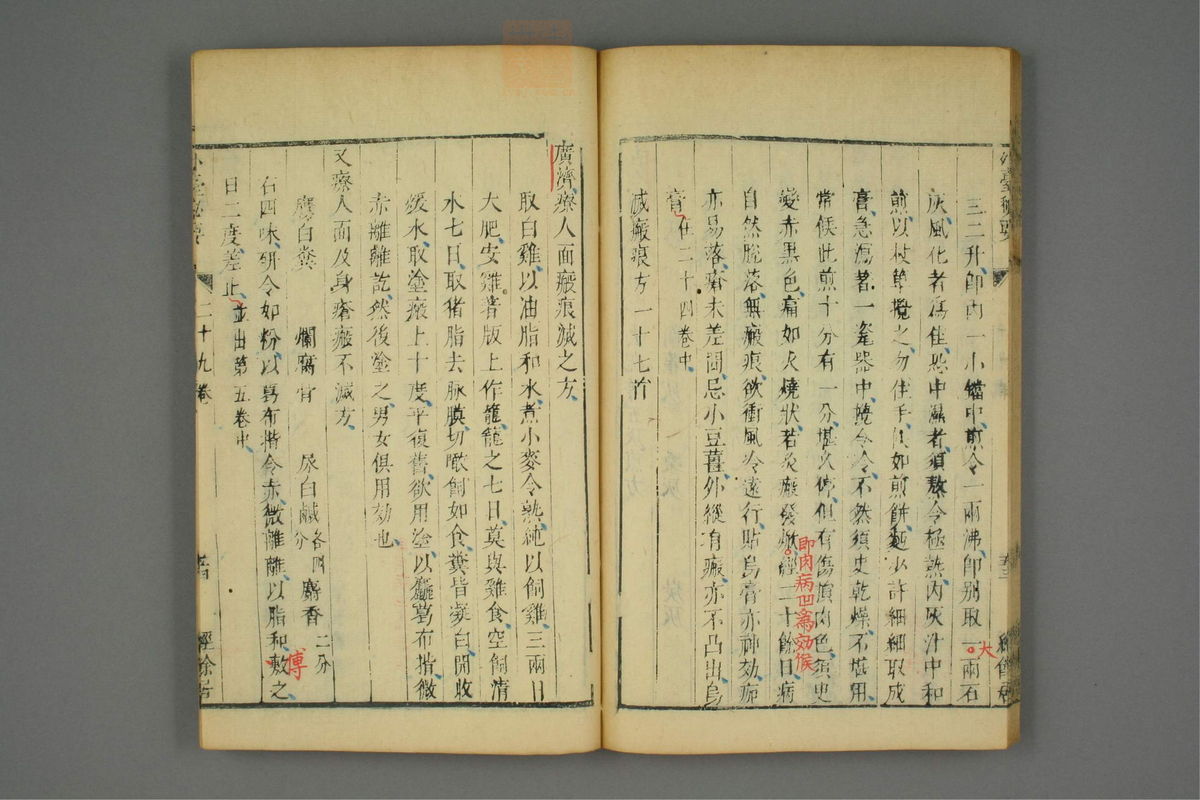 三二升即內一小鐺中煎令一兩沸即別取一兩石
大
灰風化者為佳恐中濕者須熬令極熱內灰汁中和
煎以杖單攪之勿住手候如煎餅麵少許細細取成
膏急瀉著一瓷器中攪令冷不然須臾乾燥不堪用
常候此煎十分有一分堪久停但有傷損肉色須臾
變赤黑色痛如火燒狀若灸瘢發掀經二十餘日病
即肉病凹為効候
自然脫落無瘢痕欲衝風冷遠行貼烏膏亦神効痂
亦易落瘡未差間忌小豆薑外縱有瘢亦不凸出烏
膏在二十四卷中
滅瘢痕方一十七首
廣濟療人面瘢痕滅之方
取白雞以油脂和水煮小麥令熟純以飼雞三兩日
大肥安雞著版上作籠籠之七日莫與雞食空飼清
水七日取猪脂去脉膜切噉飼如食糞皆凝白開收
緩水取塗瘢上十度平復舊欲用塗以麤葛布揩微
赤離離訖然後塗之男女俱用効也
又療人面及身瘡瘢不滅方
鷹白糞 爛腐骨 尿白鹹各四分 麝香二分
右四味研令如粉以葛布揩令赤微離離以脂和敷之
傅
日二度差止並出第五卷中
二十九卷
經餘居